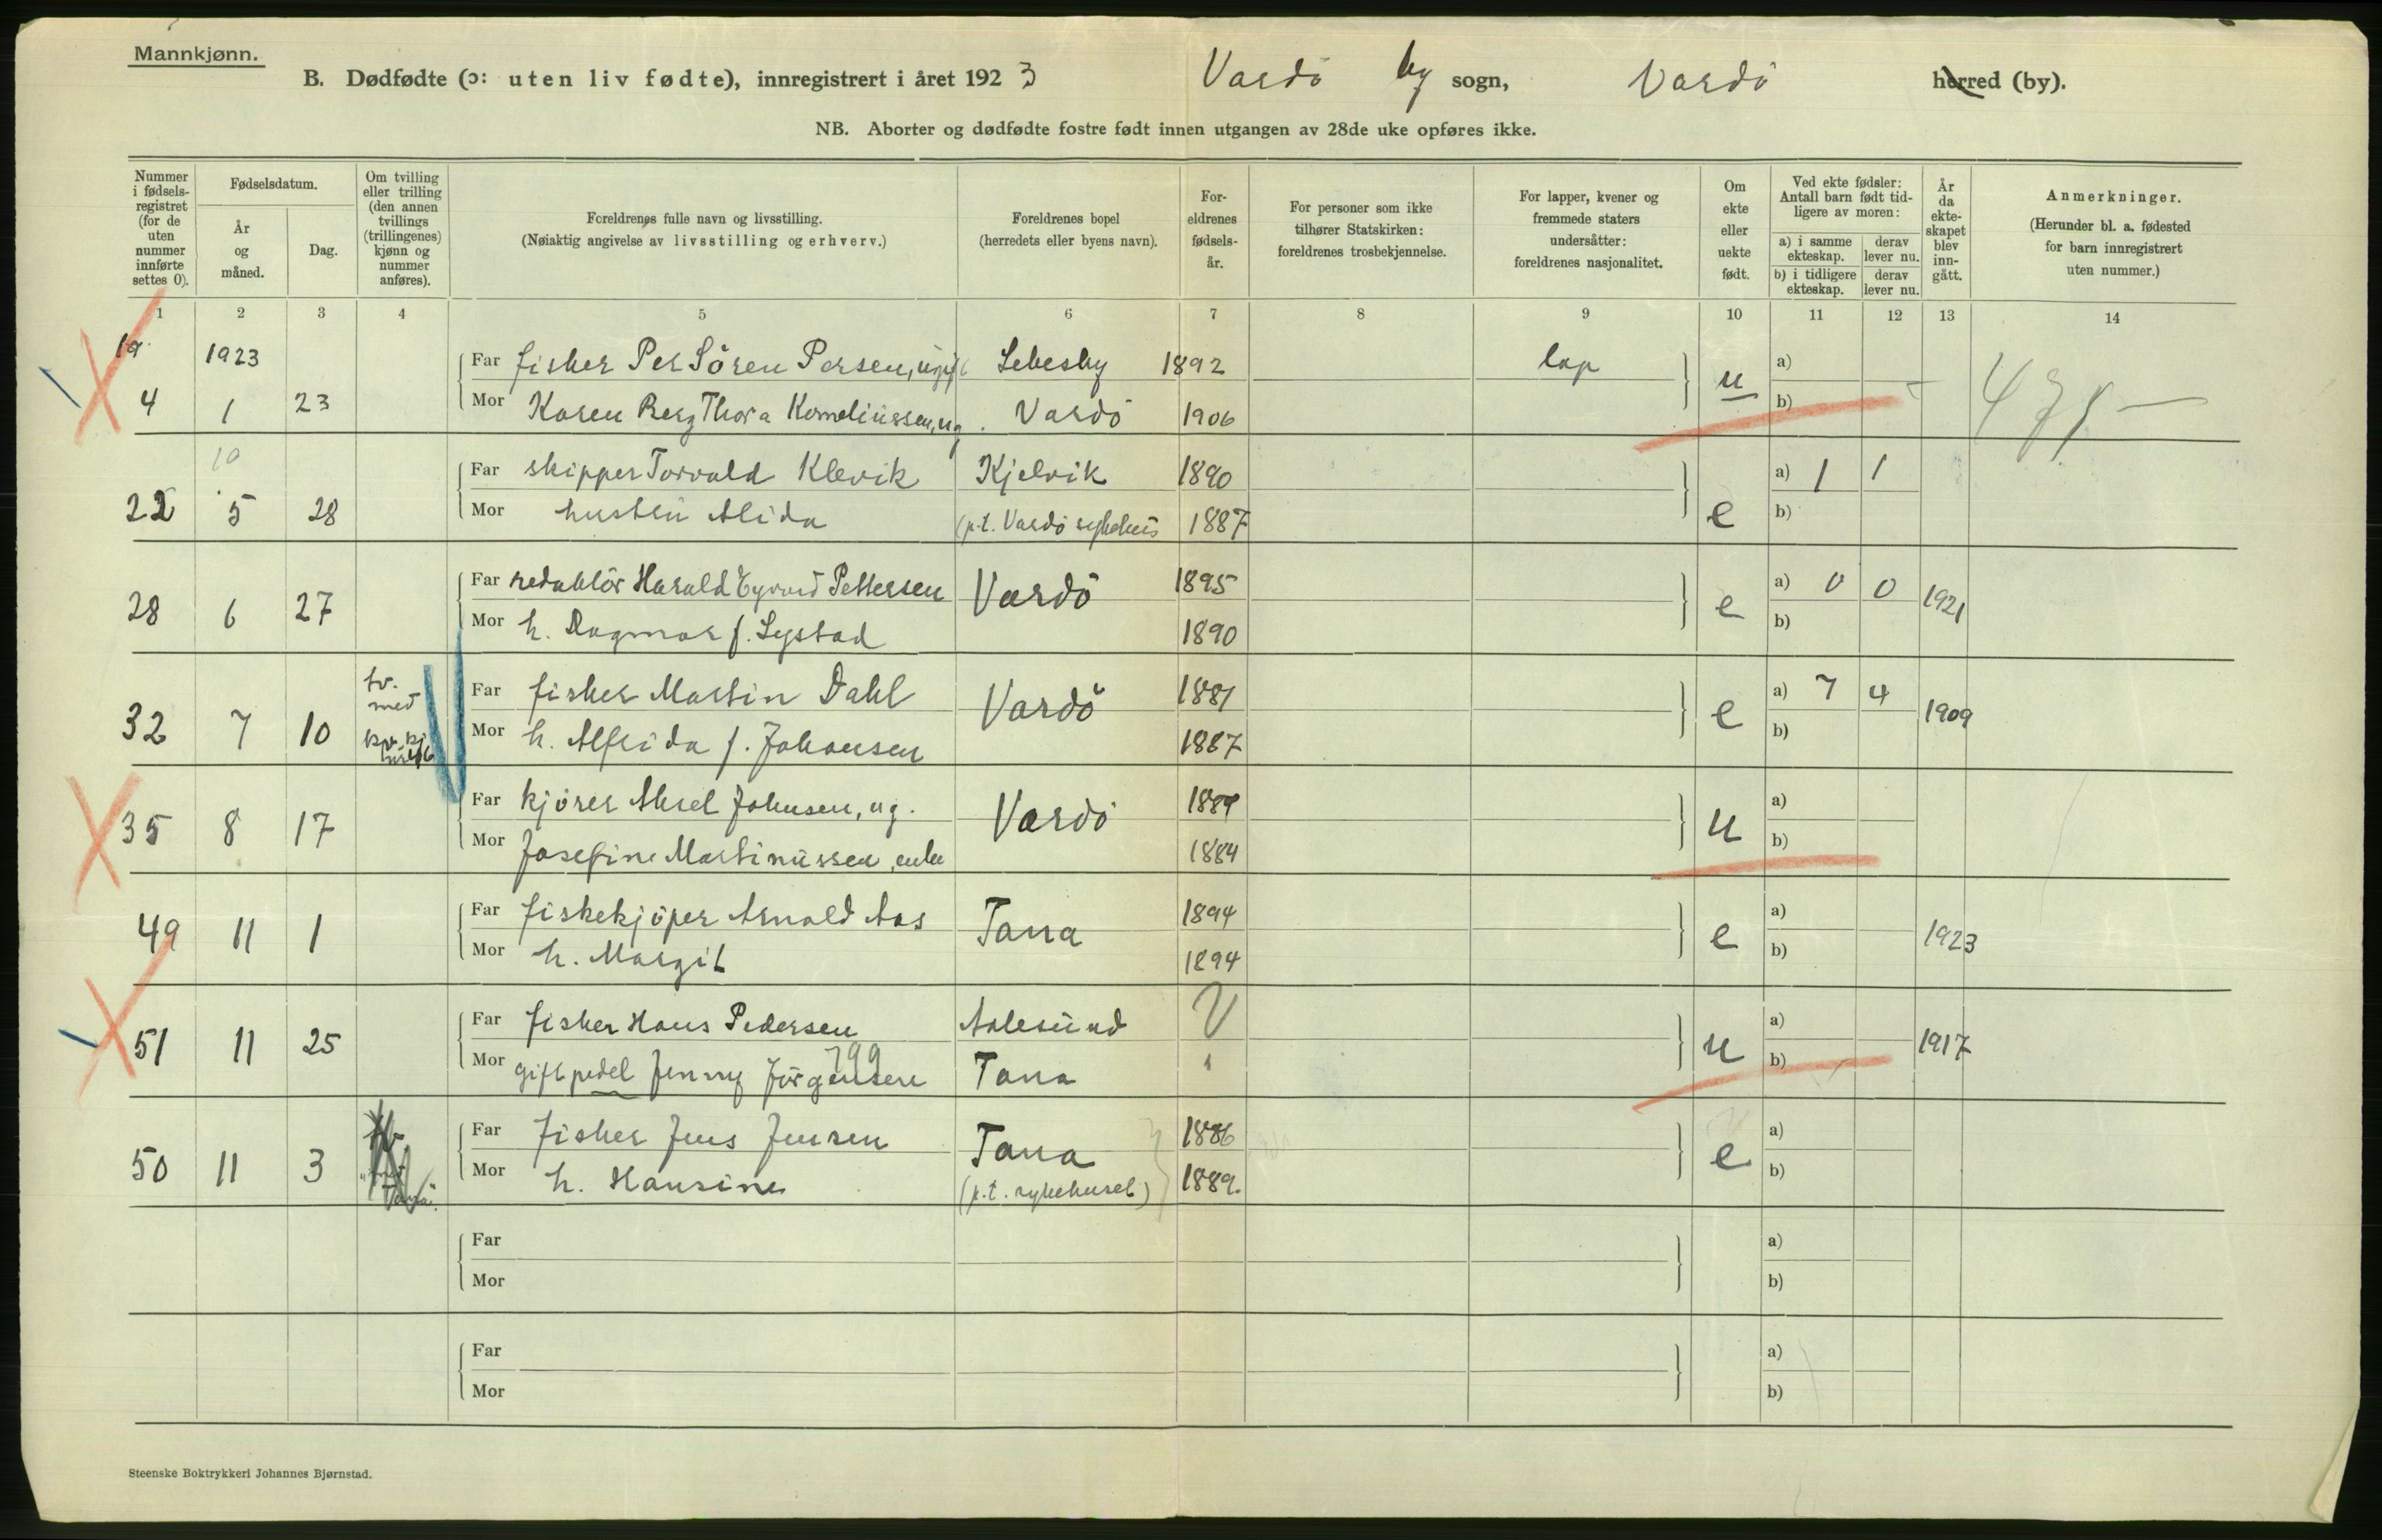 Mannkjønn.
B. Dødfødte (ɔ: uten liv fødte), innregistrert i året 1923 Vardö by sogn, Vardö herred (by).
NB. Aborter og dødfødte fostre født innen utgangen av 28de uke opføres ikke.
Nummer i fødselsregistret (for de uten nummer innførte settes 0).
Fødselsdatum.
År og måned.
Dag.
Om tvilling eller trilling (den annen tvillings (trillingenes) kjønn og nummer anføres).
Foreldrenes fulle navn og livsstilling.
(Nøiaktig angivelse av livsstilling og erhverv.)
Foreldrenes bopel
(herredets eller byens navn).
Foreldrenes fødselsår.
For personer som ikke tilhører Statskirken: foreldrenes trosbekjennelse.
For lapper, kvener og fremmede staters undersåtter: foreldrenes nasjonalitet.
Om ekte eller uekte født.
Ved ekte fødsler: Antall barn født tidligere av moren:
a) i samme ekteskap. derav lever nu.
b) i tidligere ekteskap. derav lever nu.
År da ekteskapet blev inngått.
Anmerkninger.
(Herunder bl. a. fødested for barn innregistrert uten nummer.)
1 2 3 4 5 6 7 8 9 10 11 12 13 14
19 1923 Far fisker Per Sören Persen, ugift Lebesby 1892 lap u a)
4 1 23 Mor Karen Berg Thora Korneliussen, ug. Vardö 1906 b)
10 Far skipper Torvald Klevik Kjelvik 1890 a) 1 1
22 5 28 Mor hustru Alida (p.t. Vardö sykehus 1887 e b)
Far redaktör Harald Eyvind Pettersen Vardö 1895 a) 0 0 1921
28 6 27 Mor h. Dagmar f. Lystad 1890 e b)
tv. med Far fisker Martin Dahl Vardö 1881 a) 7 4 1909
32 7 10 Mor h. Alfrida f. Johansen 1887 e b)
Far kjörer Aksel Johnsen, ug. Vardö 1889 a)
35 8 17 Mor Josefine Martinussen, enke 1884 u b)
Far fiskekjöper Arnold Aas Tana 1894 a)
49 11 1 Mor h. Margit 1894 e b) 1923
Far fisker Hans Pedersen Aalesund a)
51 11 25 Mor gift pedel Jenny Jörgensen Tana u b) 1917
799
Far fisker Jens Jensen Tana 1886 a)
50 11 3 Mor h. Hansine (p.t. sykehuset) 1889. e b)
Far a)
Mor b)
Far a)
Mor b)
Steenske Boktrykkeri Johannes Bjørnstad.